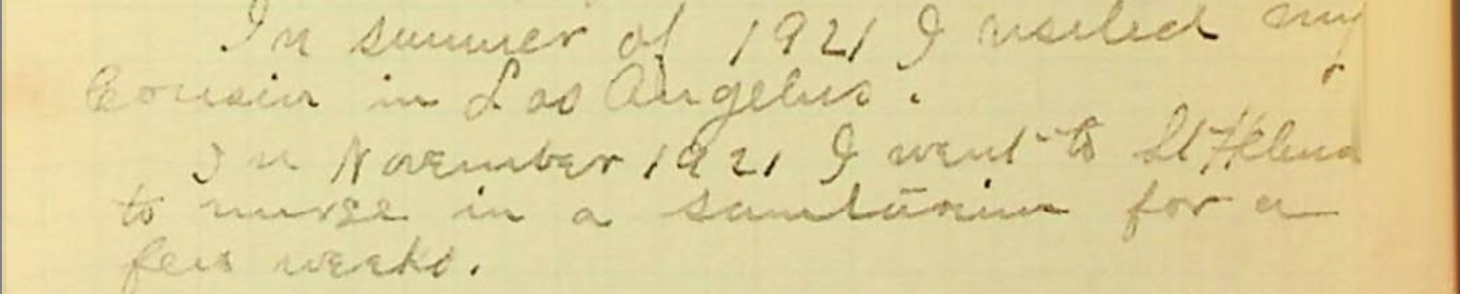 In summer of 1921 I visited my
Cousin in Los Angelus.
In November 1921 I went to St Helena
to nurse in a sanitarium for a
few weeks.